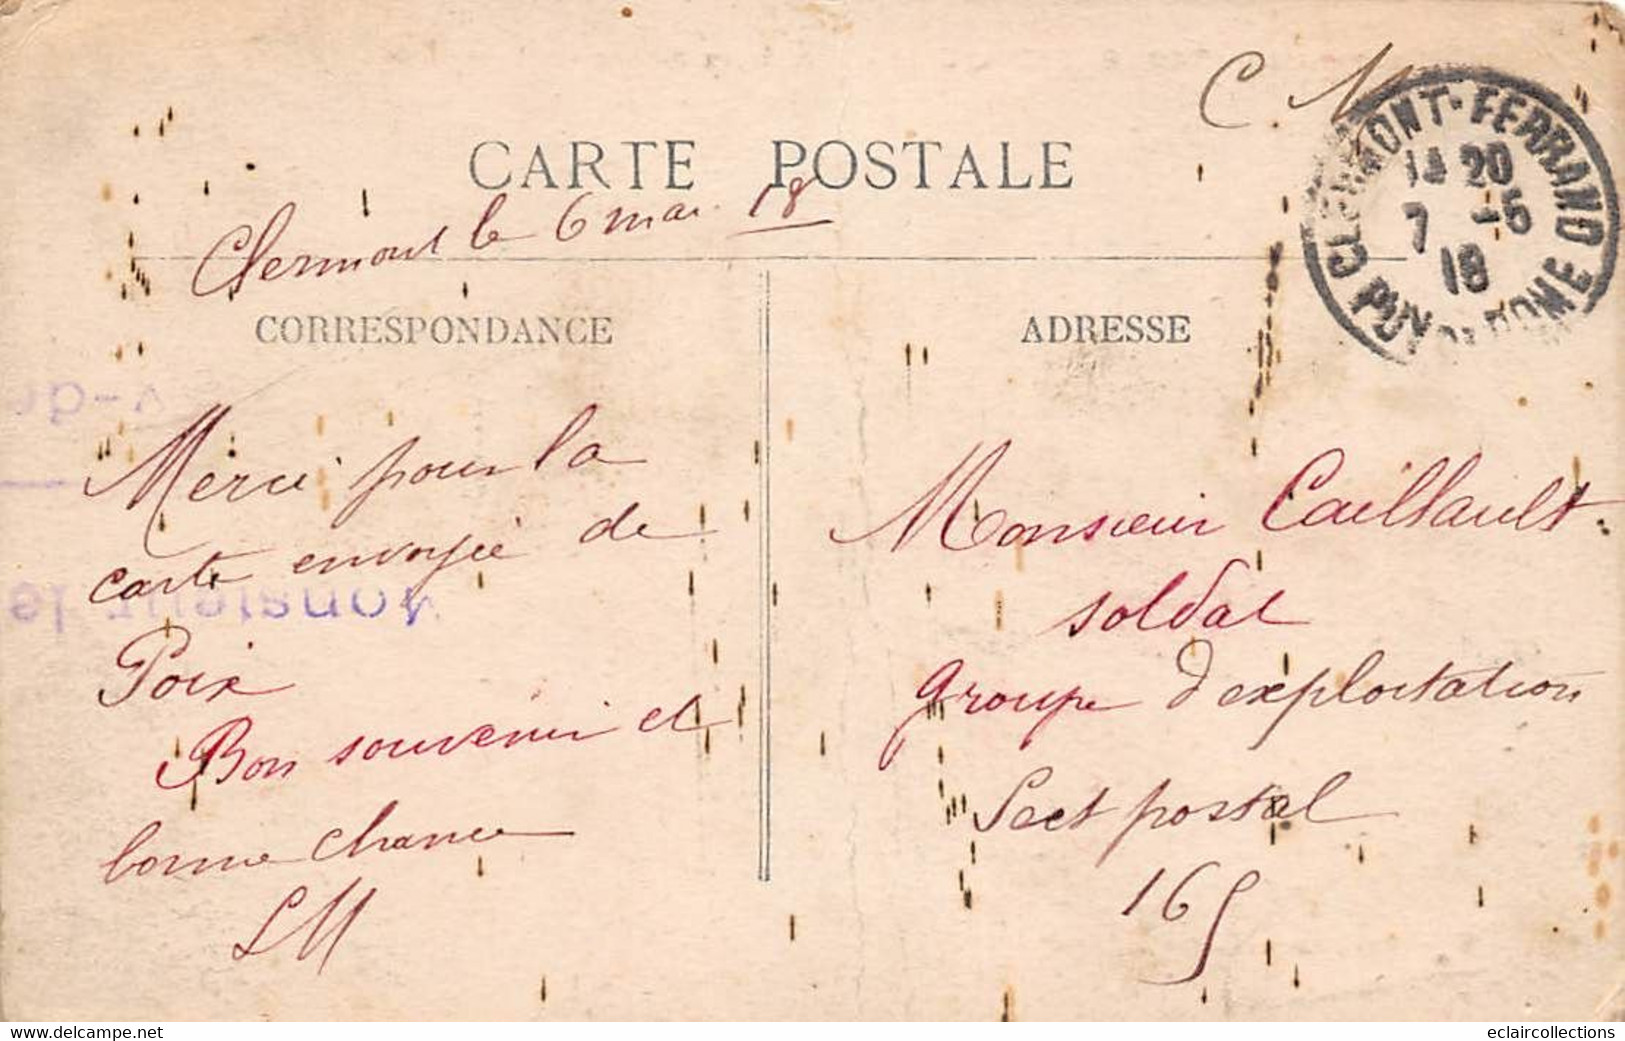 C M
CARTE POSTALE
CLERMONT-FERRAND
14 20
7 -5
18
PUY DE DOME
Clermont le 6 mai 18
CORRESPONDANCE
ADRESSE
Merci pour la
carte envoyée de
Poix
Bon souvenir et
bonne chance
LM
Monsieur Caillault
soldat
groupe d'exploitation
Sect postal
165
Monsieur le
www.delcampe.net
eclaircollections